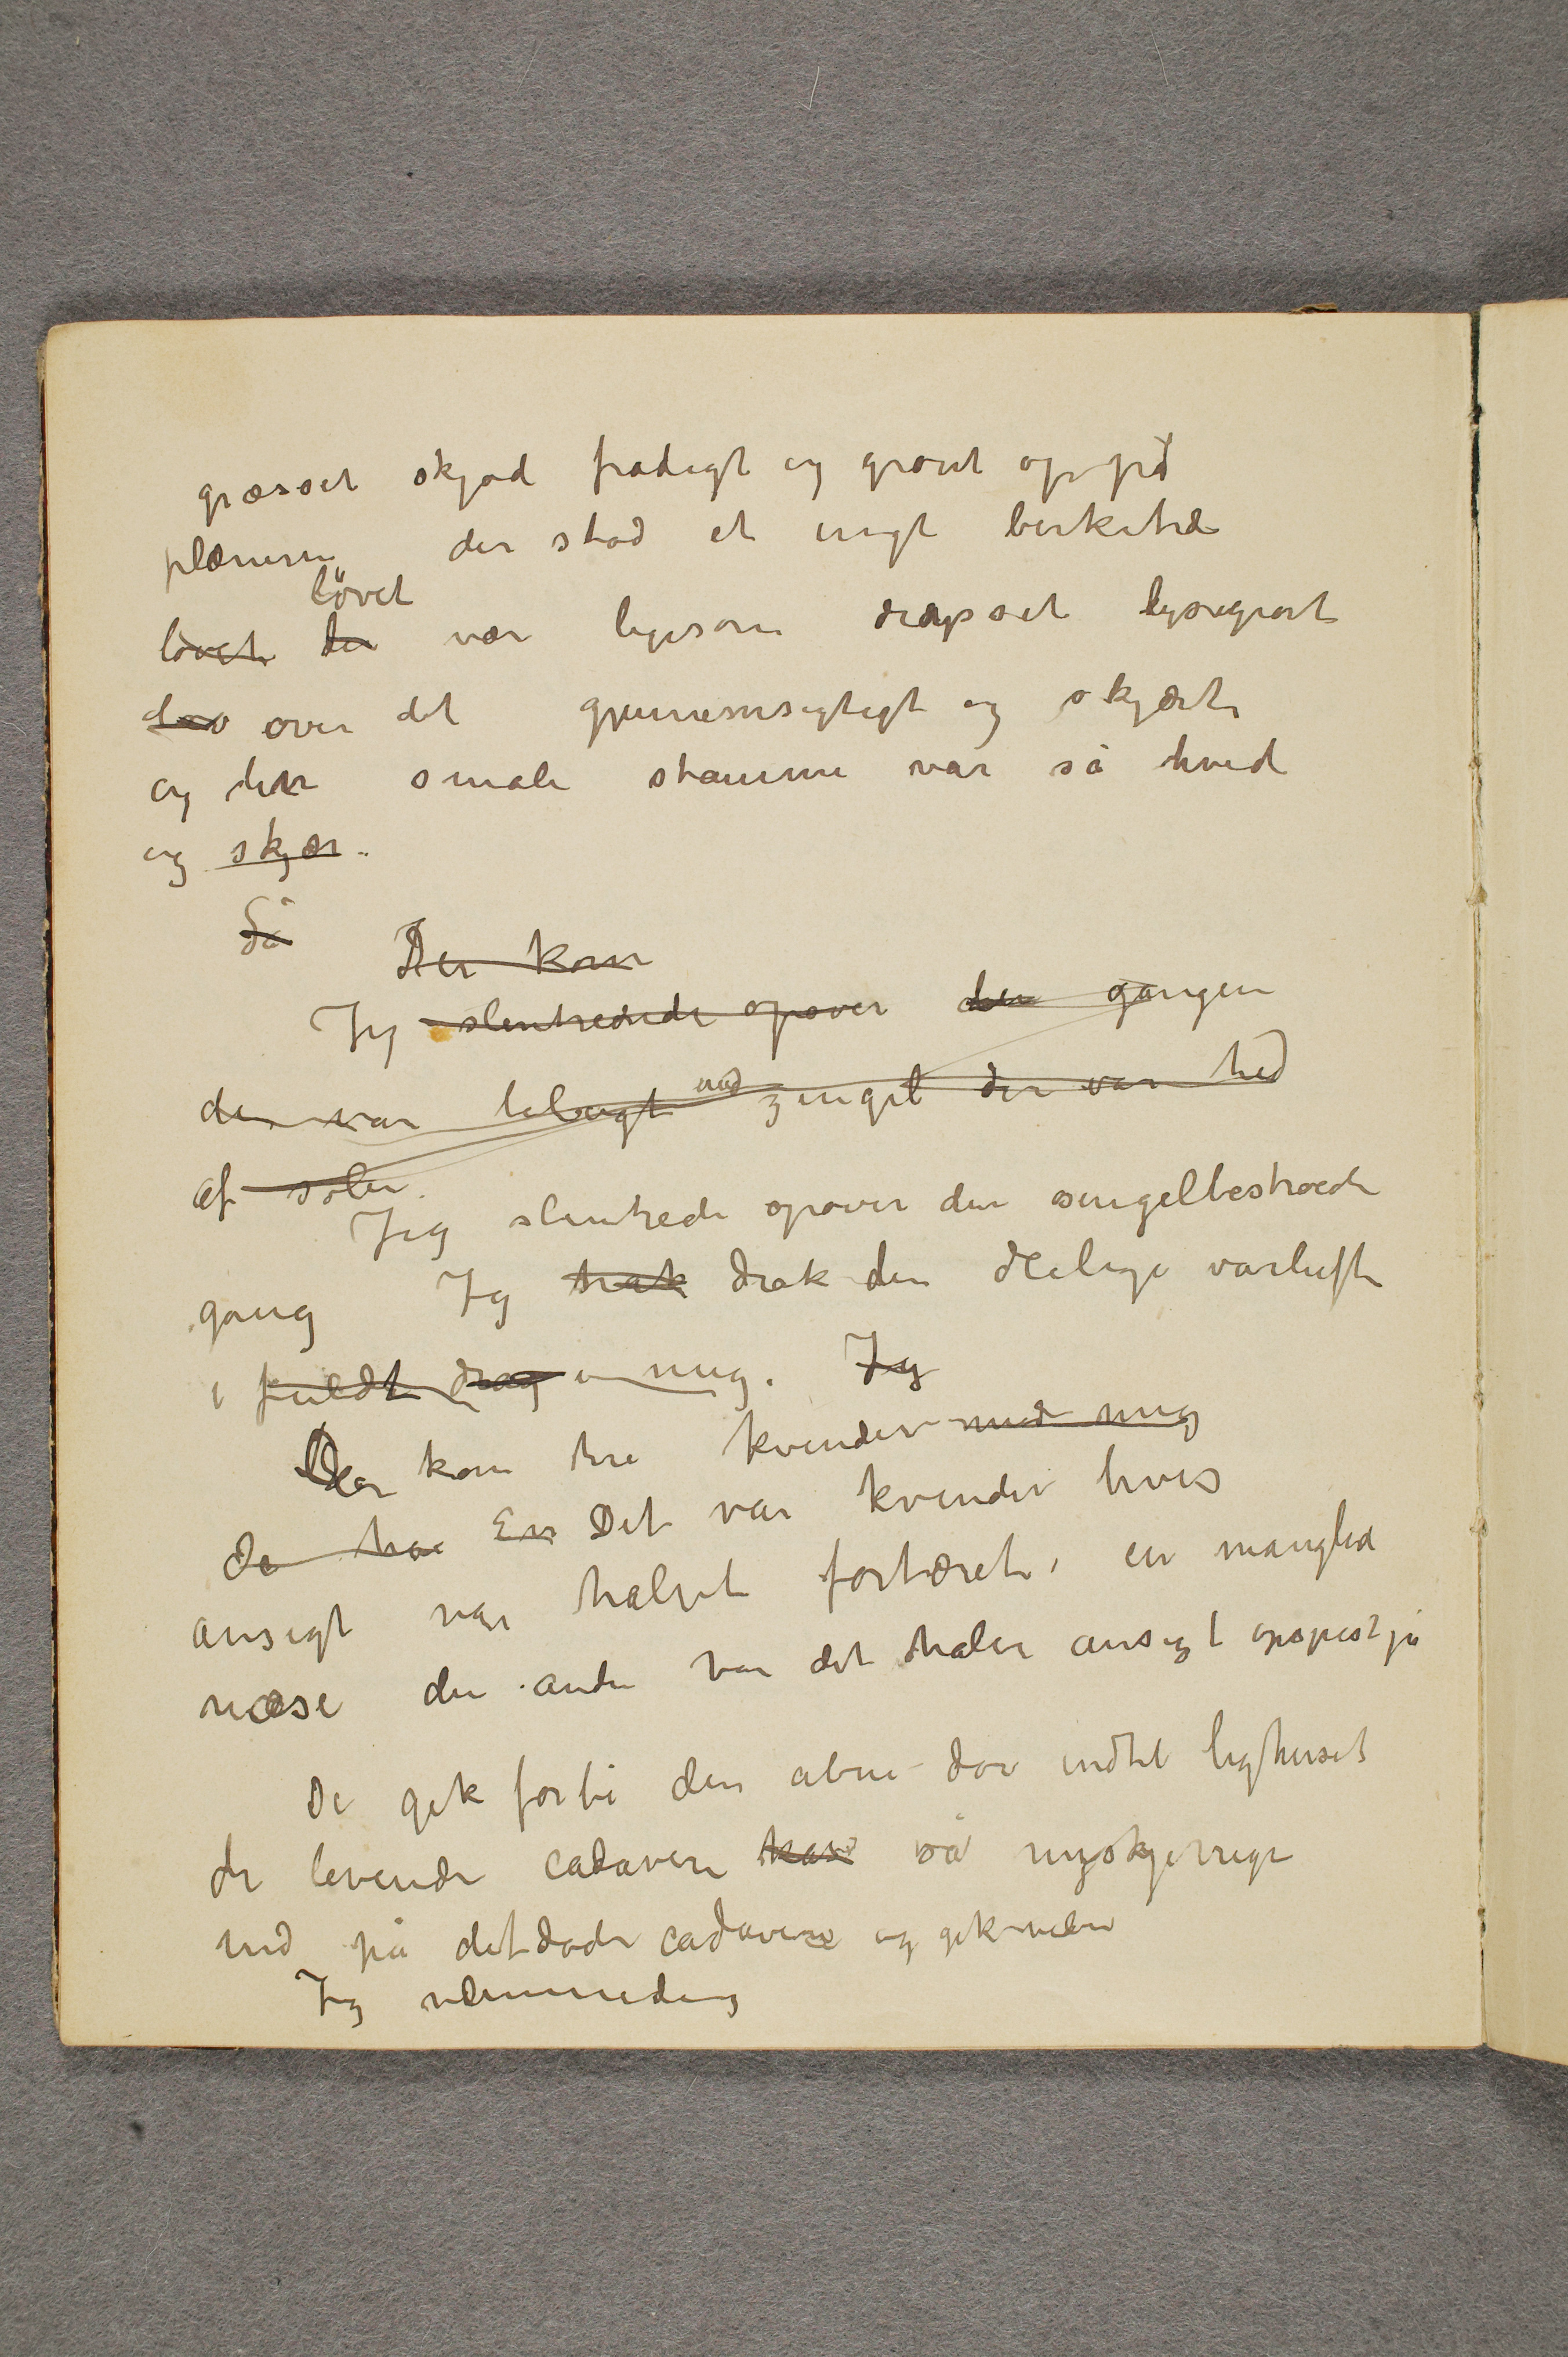 græsset skjød frodigt og grønt op på
plænerne der stod et ungt birketræ
løvet
løvet der var ligesom drysset lysegrønt
løv over det gjennemsigtigt og skjært
og den smale stamme var så hvid
og skjær.
Så
Der kom
Jeg slentrende opover den gangen
den var belagt med zingel der var hed
af solen.
Jeg slentrede opover den singelbestrøede
gang Jeg trak drak den deilige vårluft
i fuldt drag i mig. Jeg
Der kom tre kvinder mod mig
de har En Det var kvinder hvis
ansigt var halvt fortæret, en mangled
næse den anden var det halve ansigt opspist på
De gik forbi den åbne dør indtil lighuset
de levende cadavere så nysgjerrige
ind på det døde cadavere og gik videre
Jeg vemmedes